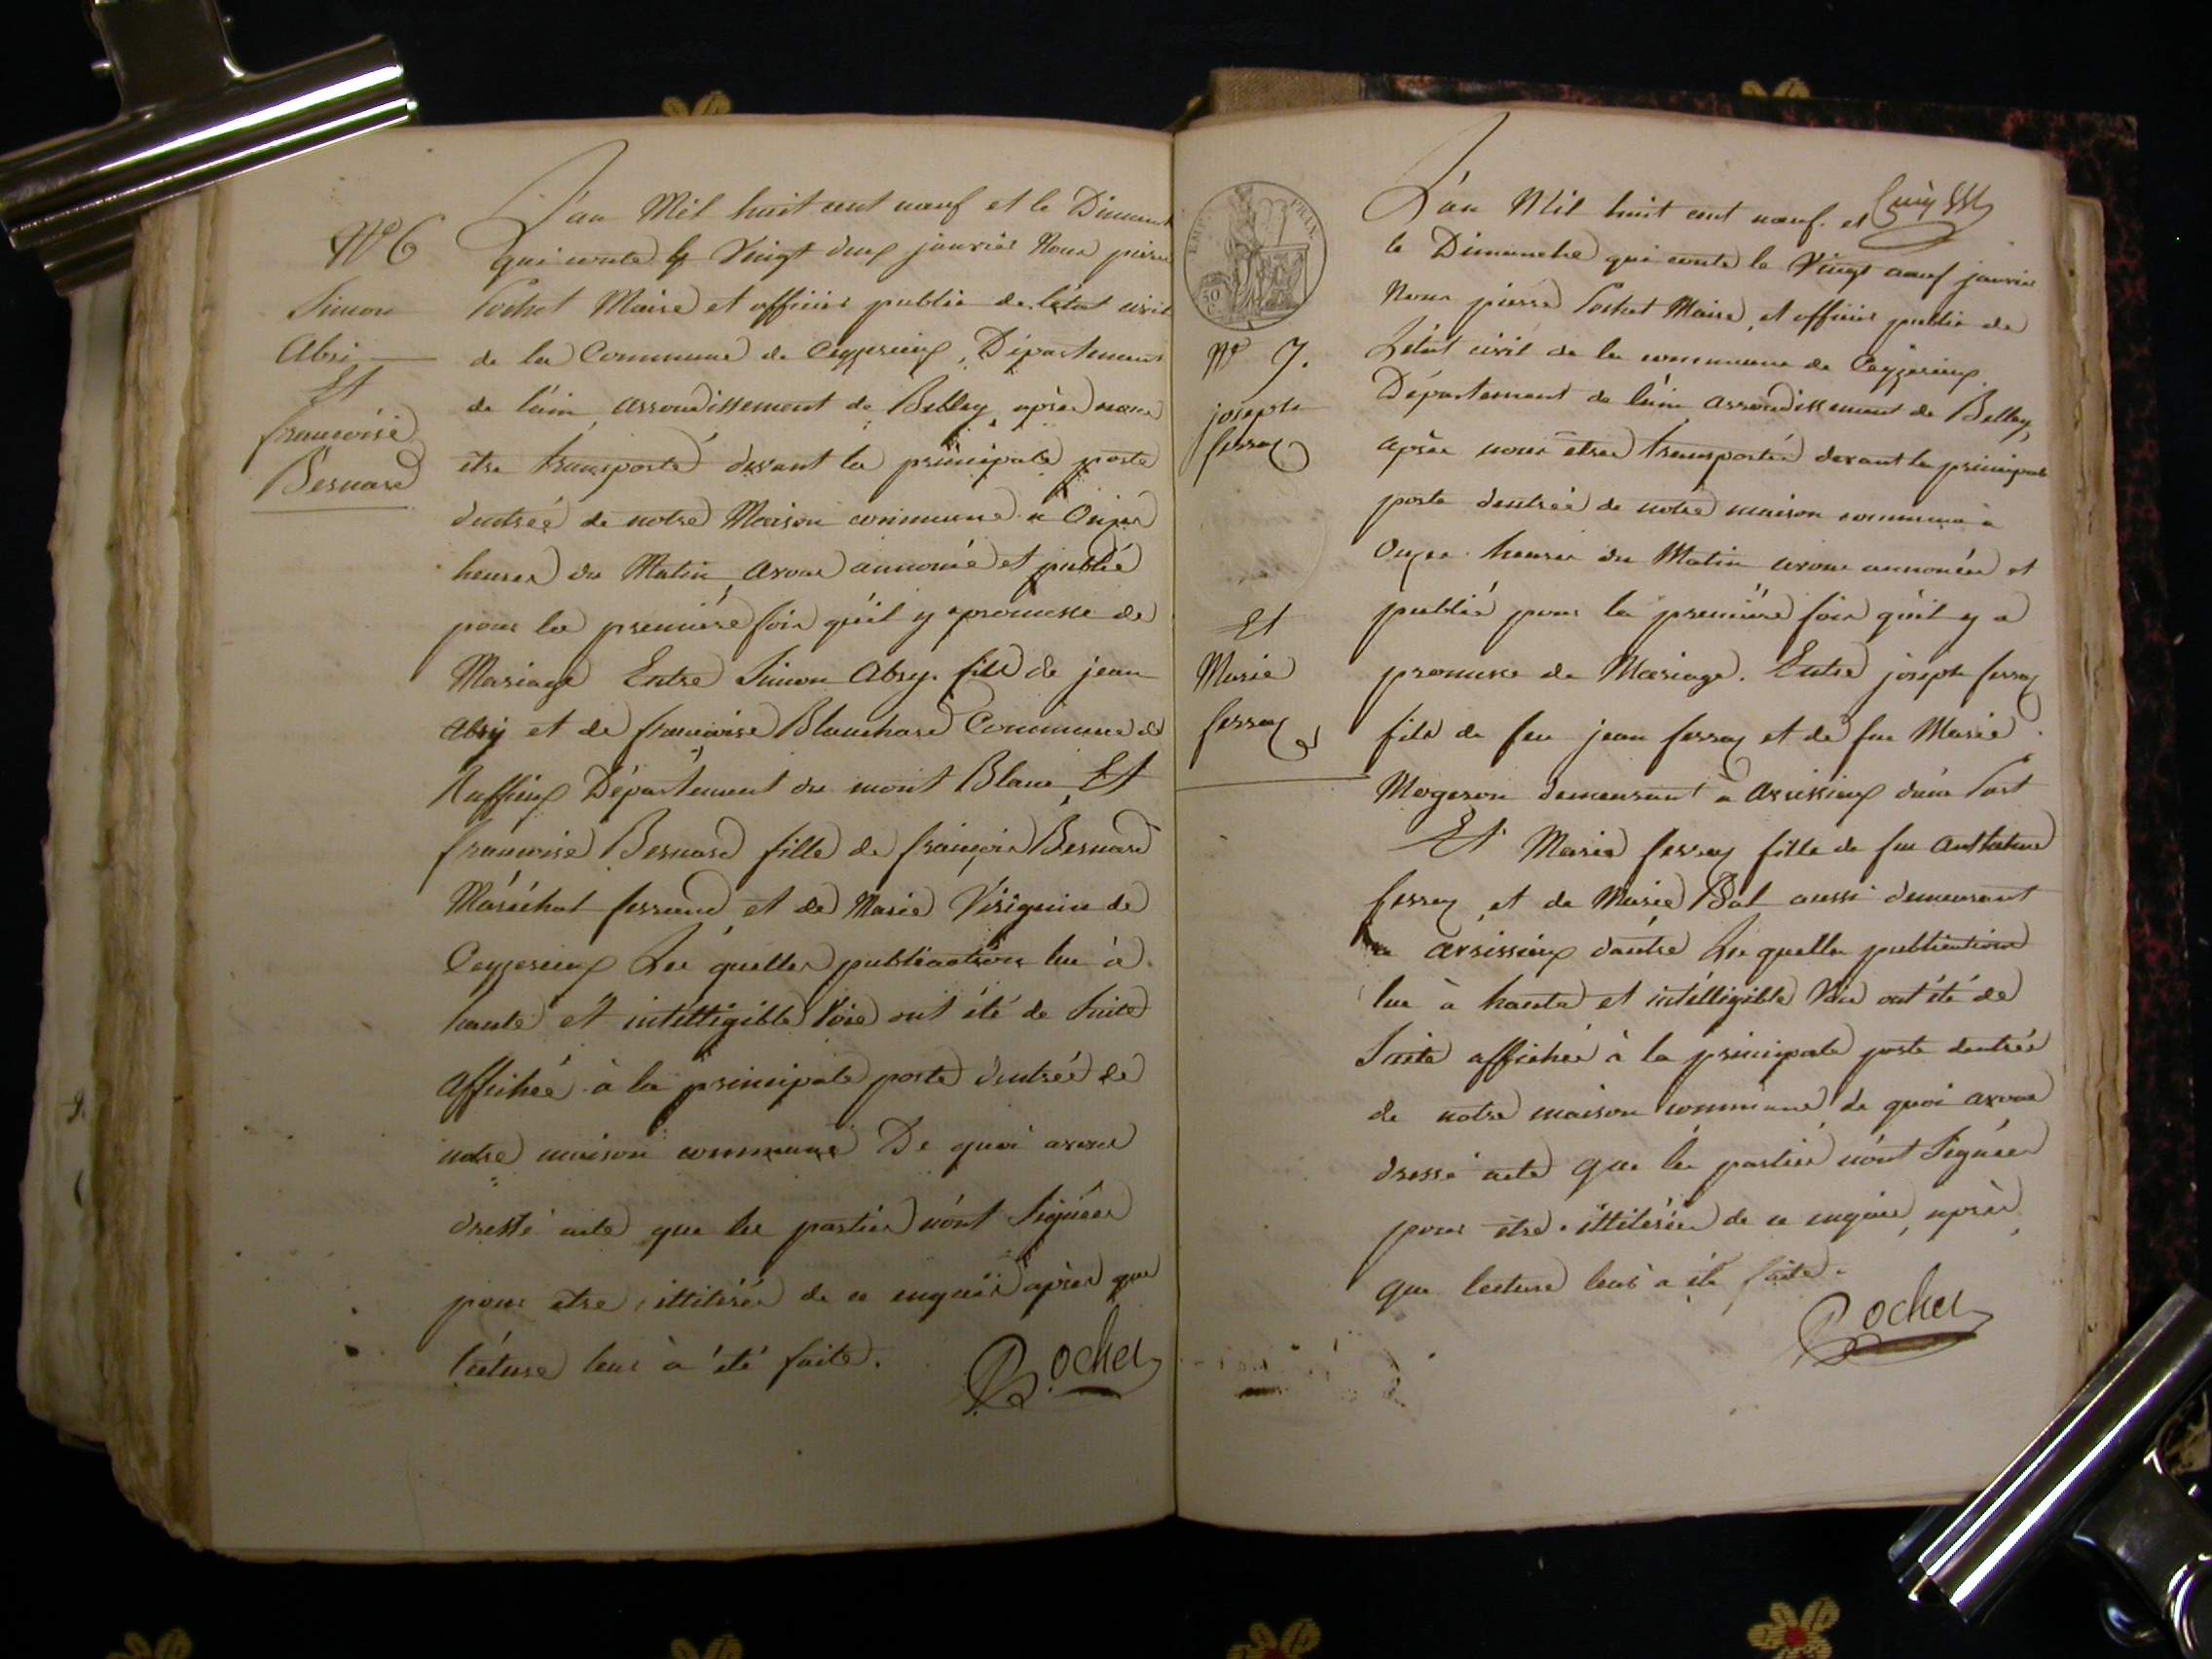 N° 6
Simon
Abri
Et
françoise
Bernard
L'an Mil huit cent nœuf et le Dimanch
qui conte le Vingt deux janvier Nous pierre
Pochet Maire et officier public de l'état civil
de la Commune de Ceyzerieux, Département
de l'ain arrondissement de Belley, après nous
etre transporté devant la principale porte
dentrée de notre Maison commune a Onze
heures du Matin, avons annoncé et publié
pour la première fois qu'il y a promesse de
Mariage Entre Simon Abry fils de jean
abry et de françoise Blanchard Commune de
Ruffieux Département du mont Blanc, Et
françoise Bernard fille de françois Bernard
Maréchal ferrand et de Marie Viriguin de
Ceyzerieux Les quelles publications lue à
haute et intelligible Voie ont été de Suite
affichée à la principale porte dentrée de
notre maison commune De quoi avons
dressé acte que les parties n'ont Signées
pour etre illitérées de ce enquis après que
lecture leur à été faite.
Pochet
EMP. FRAN.
50 C
N° 7.
joseph
ferray
Et
Marie
ferray
L'an Mil huit cent nœuf. et
le Dimanche qui conte le Vingt nœuf janvier
Nous pierre Pochet Maire, et officier public de
L'état civil de la commune de Ceyzerieux
Département de l'ain arrondissement de Belley,
après nous etres transportés devant la principale
porte dentrée de notre maison commune à
Onze heures du Matin avons annoncées et
publié pour la première fois qu'il y a
promesse de Mariage. Entre joseph ferray
fils de feu jean ferray et de fue Marie
Mogeron demeurant a avrissieux d'une Part
Et Marie ferray fille de feu anthelme
ferray, et de Marie Bal aussi demeurant
a avrissieux d'autre Les quelles publications
lue à haute et intélligible Voie ont été de
Suite affichée à la principale porte dentrée
de notre maison commune de quoi avons
dressé acte que les parties n'ont Signées
pour etre illitérées de ce enquis, après
que lecture leur a été faite.
Pochet